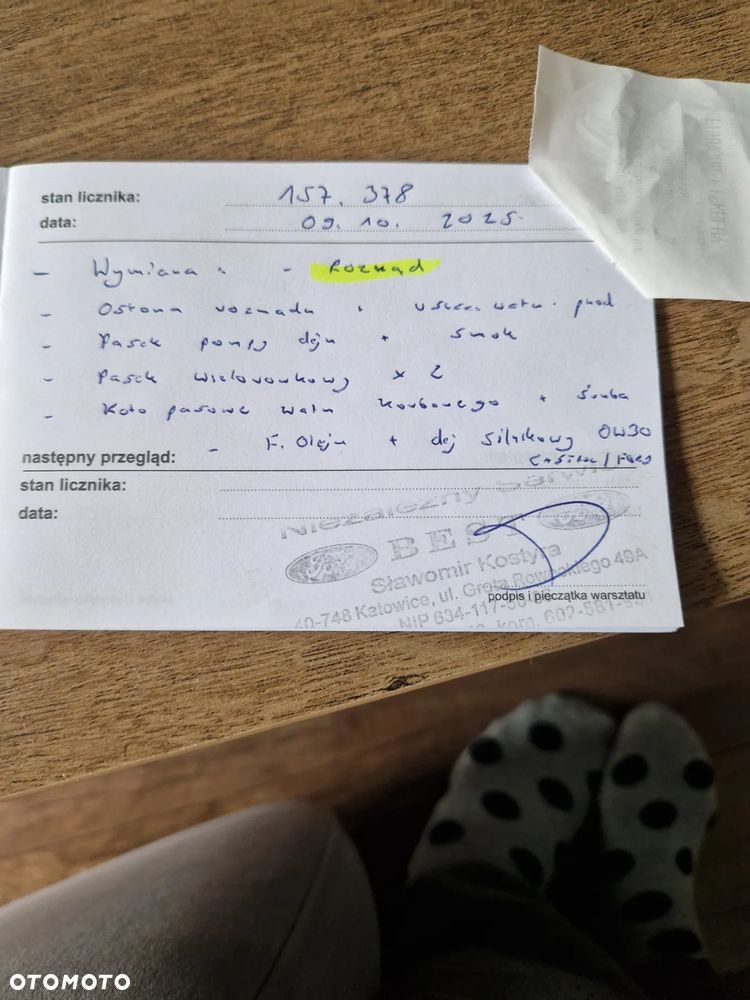 stan licznika: 157.378
data: 09.10.2025
- Wymiana : - Rozrząd
- Osłona rozrządu + uszcz. wału. przód
- Pasek pompy oleju + smok
- Pasek wielorowkowy x 2
- Koło pasowe wału korbowego + śruba
- F. Oleju + olej silnikowy 0W30
następny przegląd: Castrol/Ford
stan licznika:
data:
Niezależny Serwis
BEST
Sławomir Kostyra
40-748 Katowice, ul. Grota Roweckiego 49A
podpis i pieczątka warsztatu
NIP 634-117-
kom. 602-581-
OTOMOTO